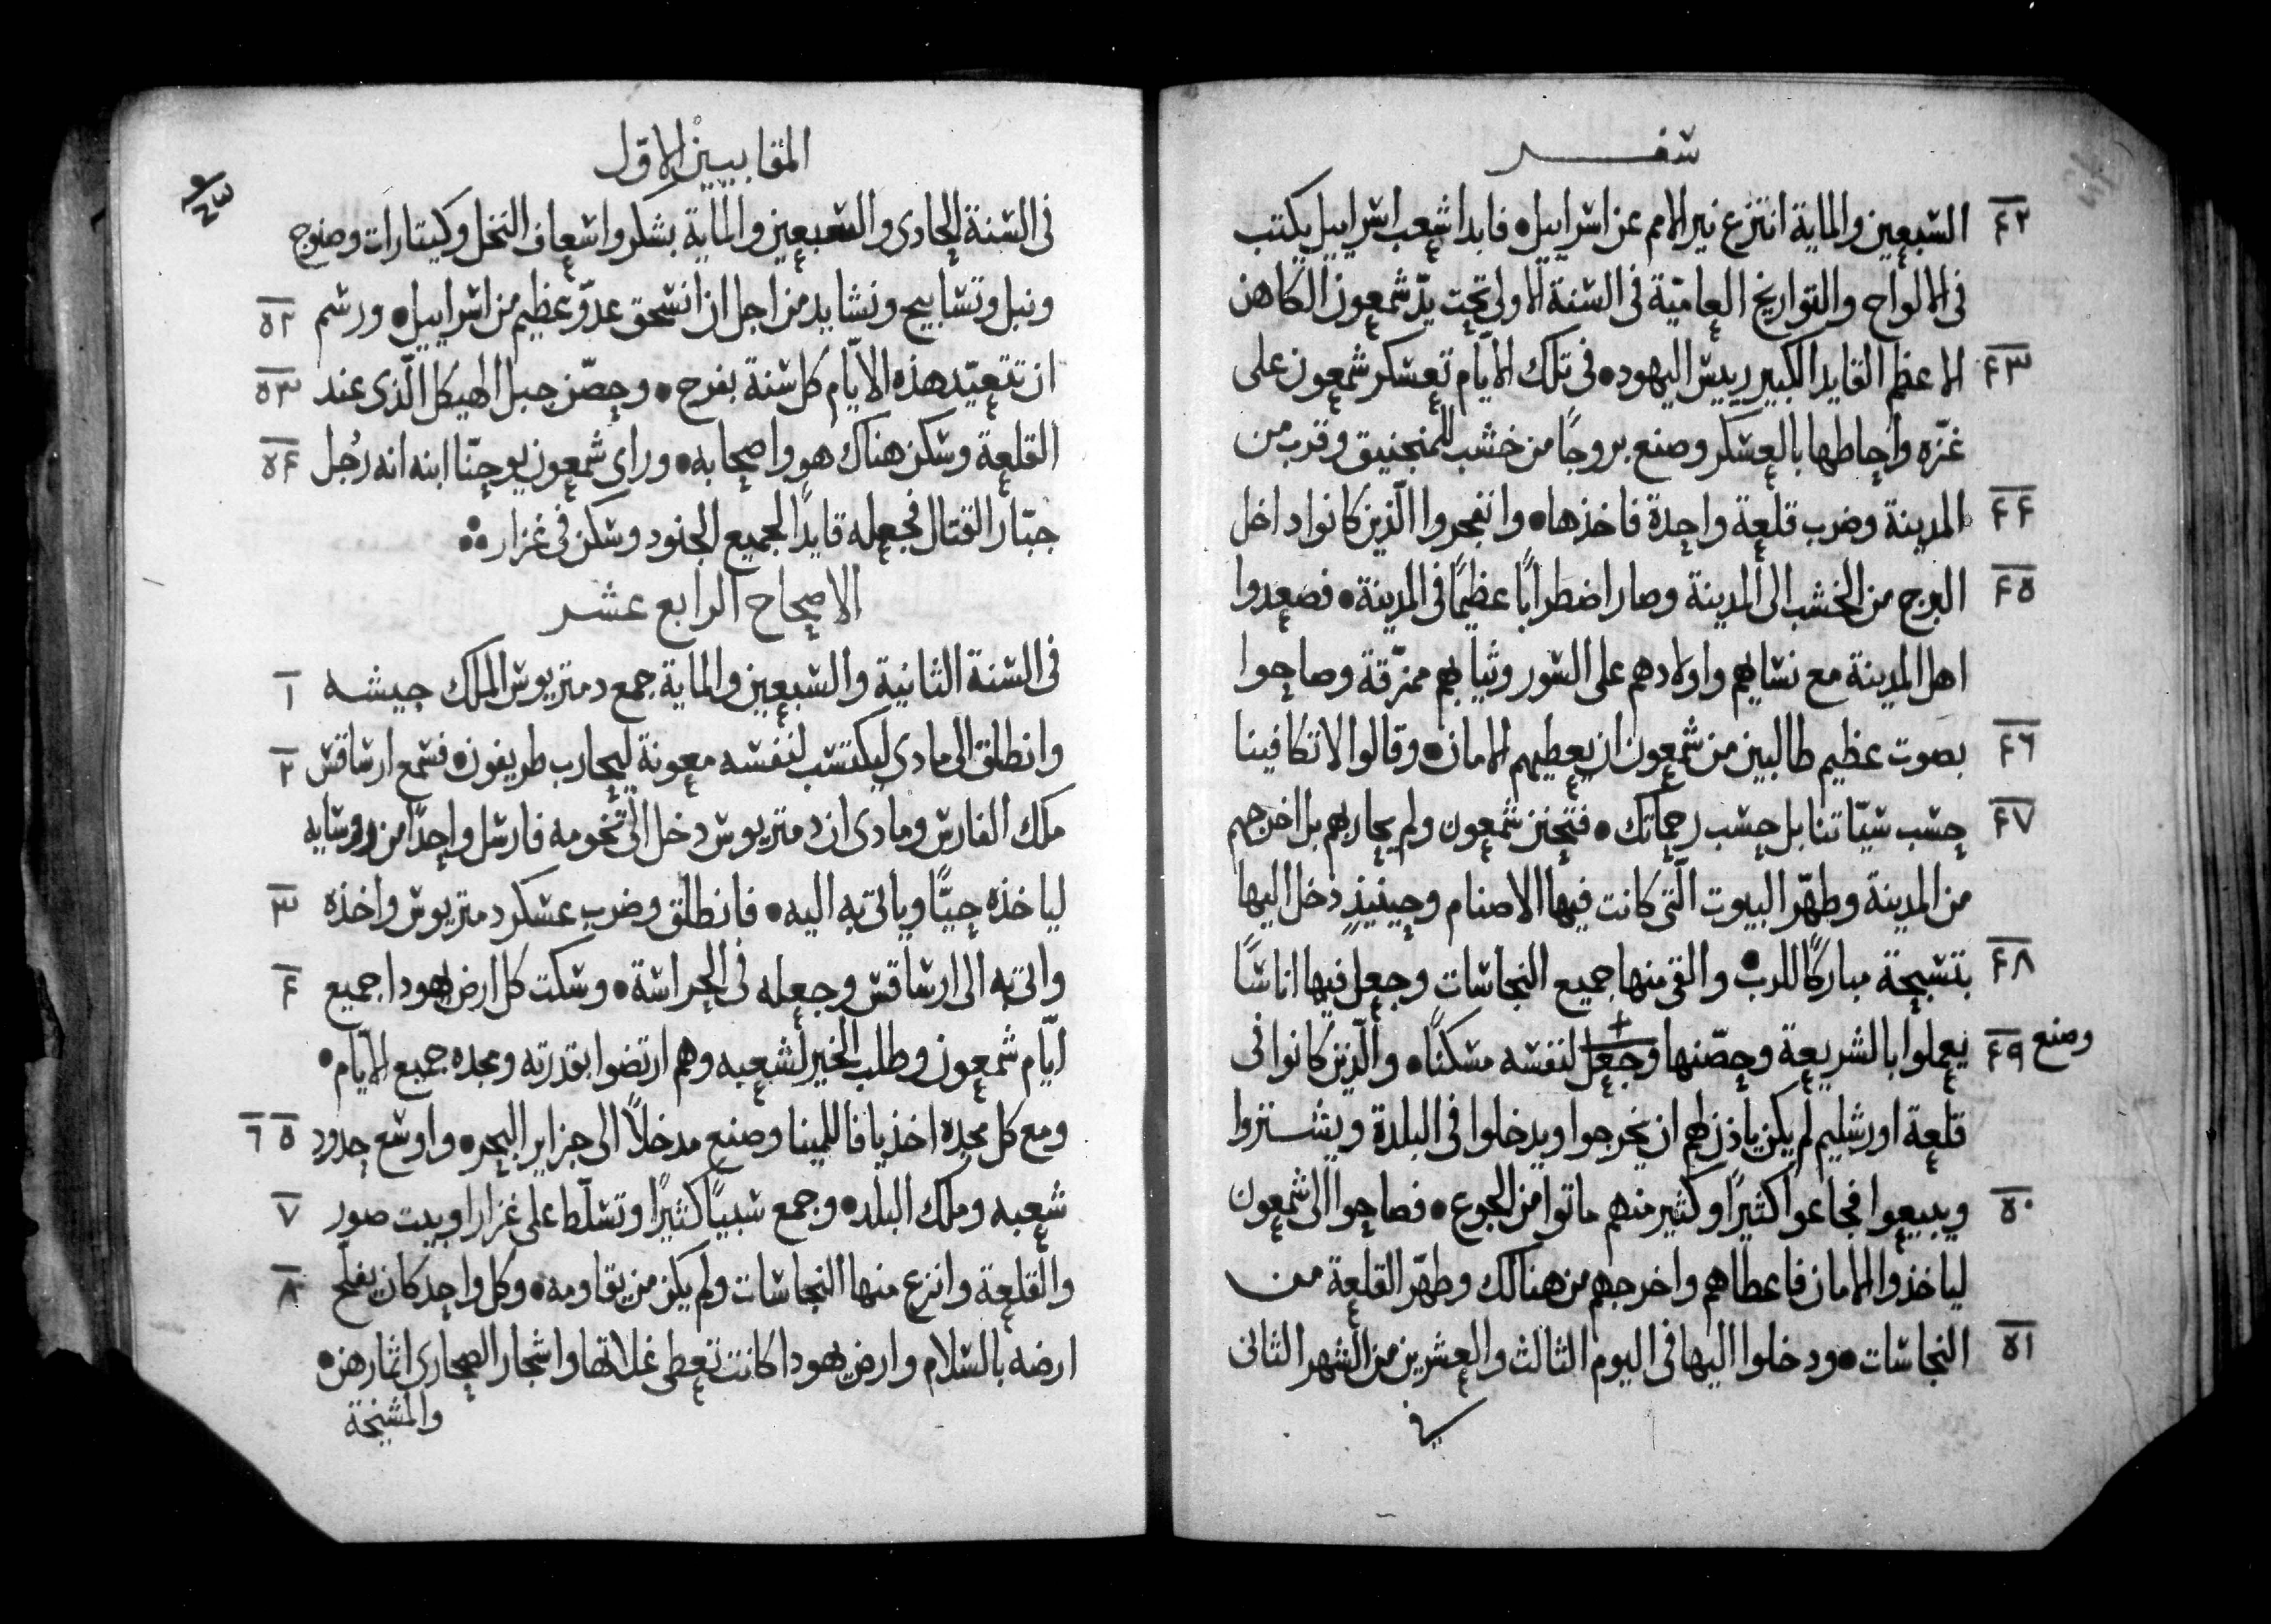 سفر
٤٢ السبعين والماية انتزع نير الامم عن اسراييل • فابدا شعب اسراييل يكتب
في الالواح والتواريخ العاميّة في السنة الاولى تحت يدّ شمعون الكاهن
٤٣ الاعظم القايد الكبير رييس اليهود • في تلك الايّام تعسكر شمعون على
غزّه واحاطها بالعسكر وصنع بروجًا من خشب للمنجنيق وقرب من
٤٤ المدينة وضرب قلعة واحدة فاخذها • وانفجروا الّذين كانوا داخل
٤٥ البرج من الخشب الى المدينة وصار اضطرابًا عظيمًا في المدينة • فصعدوا
اهل المدينة مع نسايهم واولادهم على السور وثيابهم ممزّقة وصاحوا
٤٦ بصوت عظيم طالبين من شمعون ان يعطيهم الامان • وقالوا لا تكافينا
٤٧ حسب سيّاتنا بل حسب رحماتك • فتحنن شمعون ولم يحاربهم بل اخرجهم
من المدينة وطهّر البيوت الّتي كانت فيها الاصنام وحينيذٍ دخل اليها
٤٨ بتسبحة مباركًا للرب • والقى منها جميع النجاسات وجعل فيها اناسًا
وصنع ٤٩ يعملوا بالشريعة وحصّنها وجعل لنفسه مسكنًا • والّذين كانوا في
قلعة اورشليم لم يكن ياذن لهم ان يخرجوا ويدخلوا في البلدة ويشتروا
٥٠ ويبيعوا فجاعوا كثيرًا وكثير منهم ماتوا من الجوع • فصاحوا الى شمعون
لياخذوا الامان فاعطاهم واخرجهم من هنالك وطهّر القلعة من
٥١ النجاسات • ودخلوا اليها في اليوم الثالث والعشرين من الشهر الثاني
في
المقابيين الاول
في السنة الحادي والسبعين والماية بشكر واسعاف النخل وكيتارات وصنوج
ونبل وتسابيح ونشايد من اجل ان انسحق عدوّ عظيم من اسراييل • ورسم ٥٢
ان تتعيّد هذه الايّام كل سنة بفرح • وحصّن جبل الهيكل الّذي عند ٥٣
القلعة وسكن هناك هو واصحابه • وراى شمعون يوحنّا ابنه انه رُجل ٥٤
جبّار القتال فجعله قايدًا لجميع الجنود وسكن في غزار
الاصحاح الرابع عشر
في السنة الثانية والسبعين والماية جمع دمتريوس الملك جيشه ١
وانطلق الى مادي ليكتسب لنفسه معونة ليحارب طريفون • فسمع ارساقس ٢
ملك الفارس ومادي ان دمتريوس دخل الى تخومه فارسل واحدًا من روسايه
لياخذه حيًّا وياتي به اليه • فانطلق وضرب عسكر دمتريوس واخذه ٣
واتى به الى ارساقس وجعله في الحراسة • وسكت كل ارض يهودا جميع ٤
ايّام شمعون وطلب الخير لشعبه وهم ارتضوا بقدرته ومجده جميع الايّام •
ومع كل مجده اخذ يافا للمينا وصنع مدخلاً الى جزاير البحر • واوسع حدود ٥ ٦
شعبه وملك البلد • وجمع سبيًا كثيرًا وتسلّط على غزارا وبيت صور ٧
والقلعة وانزع منها النجاسات ولم يكن من يقاومه • وكل واحد كان يفلح ٨
ارضه بالسلام وارض يهودا كانت تعطى غلاتها واشجار الصحارى اثمارهن •
والمشيخة